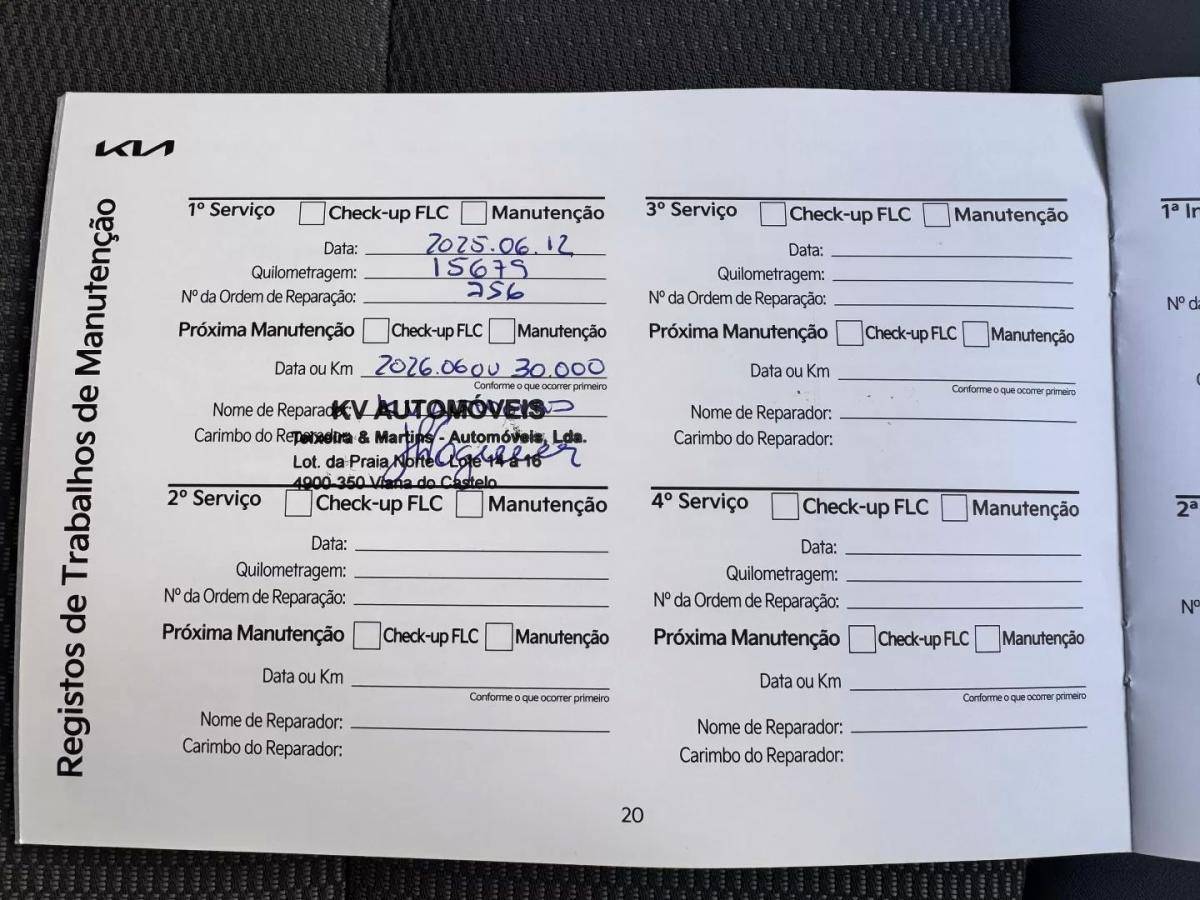 KIA
Registos de Trabalhos de Manutenção
1º Serviço Check-up FLC Manutenção
Data: 2025.06.12
Quilometragem: 15679
Nº da Ordem de Reparação: 256
Próxima Manutenção Check-up FLC Manutenção
Data ou Km 2026.06 OU 30.000
Conforme o que ocorrer primeiro
Nome de Reparador:
KV AUTOMÓVEIS
Carimbo do Reparador:
Teixeira & Martins - Automóveis, Lda.
Lot. da Praia Norte - Lote 14 a 16
4900-350 Viana do Castelo
2º Serviço Check-up FLC Manutenção
Data:
Quilometragem:
Nº da Ordem de Reparação:
Próxima Manutenção Check-up FLC Manutenção
Data ou Km
Conforme o que ocorrer primeiro
Nome de Reparador:
Carimbo do Reparador:
3º Serviço Check-up FLC Manutenção
Data:
Quilometragem:
Nº da Ordem de Reparação:
Próxima Manutenção Check-up FLC Manutenção
Data ou Km
Conforme o que ocorrer primeiro
Nome de Reparador:
Carimbo do Reparador:
4º Serviço Check-up FLC Manutenção
Data:
Quilometragem:
Nº da Ordem de Reparação:
Próxima Manutenção Check-up FLC Manutenção
Data ou Km
Conforme o que ocorrer primeiro
Nome de Reparador:
Carimbo do Reparador:
20
1ª
Nº
2ª
Nº